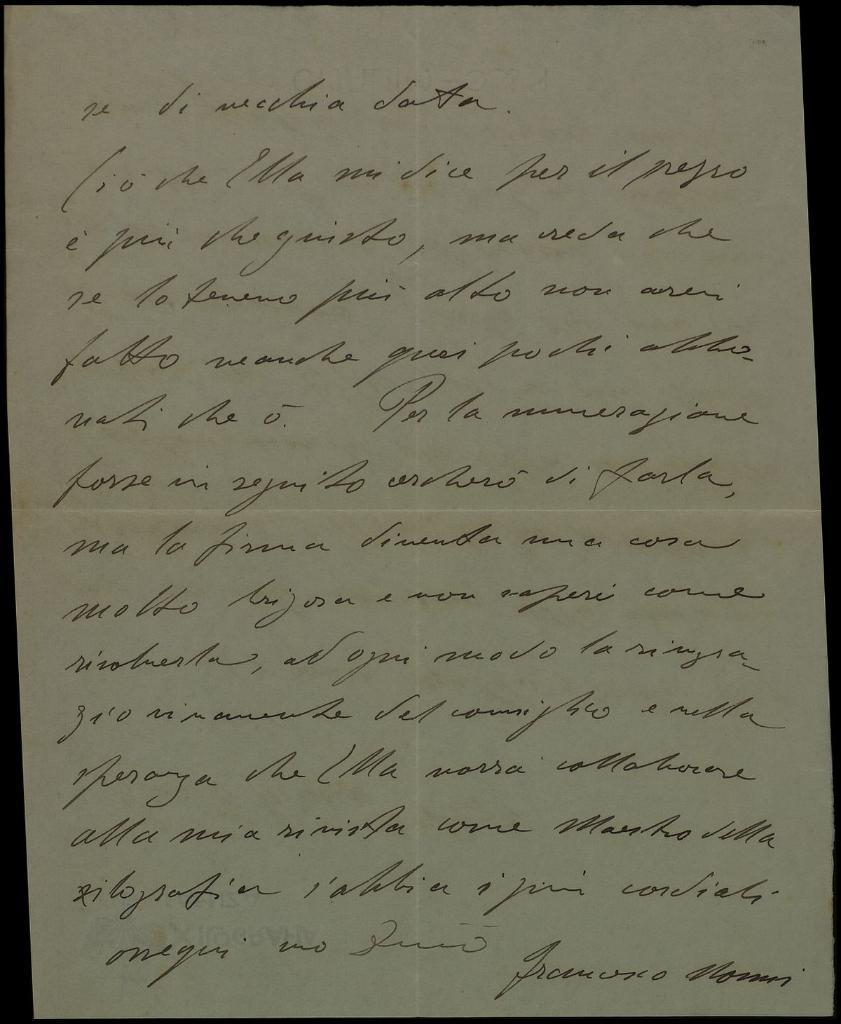 se di vecchia data.
Ciò che Ella mi dice per il prezzo
è più che giusto, ma creda che
se lo tenevo più alto non avrei
fatto neanche quei pochi abbo-
nati che ò. Per la numerazione
forse in seguito cercherò di farla,
ma la firma diventa una cosa
molto brigosa e non saprei come
risolverla, ad ogni modo la ringra-
zio vivamente del consiglio e nella
speranza che Ella vorrà collaborare
alla mia rivista come Maestro della
xilografia s'abbia i più cordiali
ossequi suo
Francesco Nonni
XILOGRAFIA